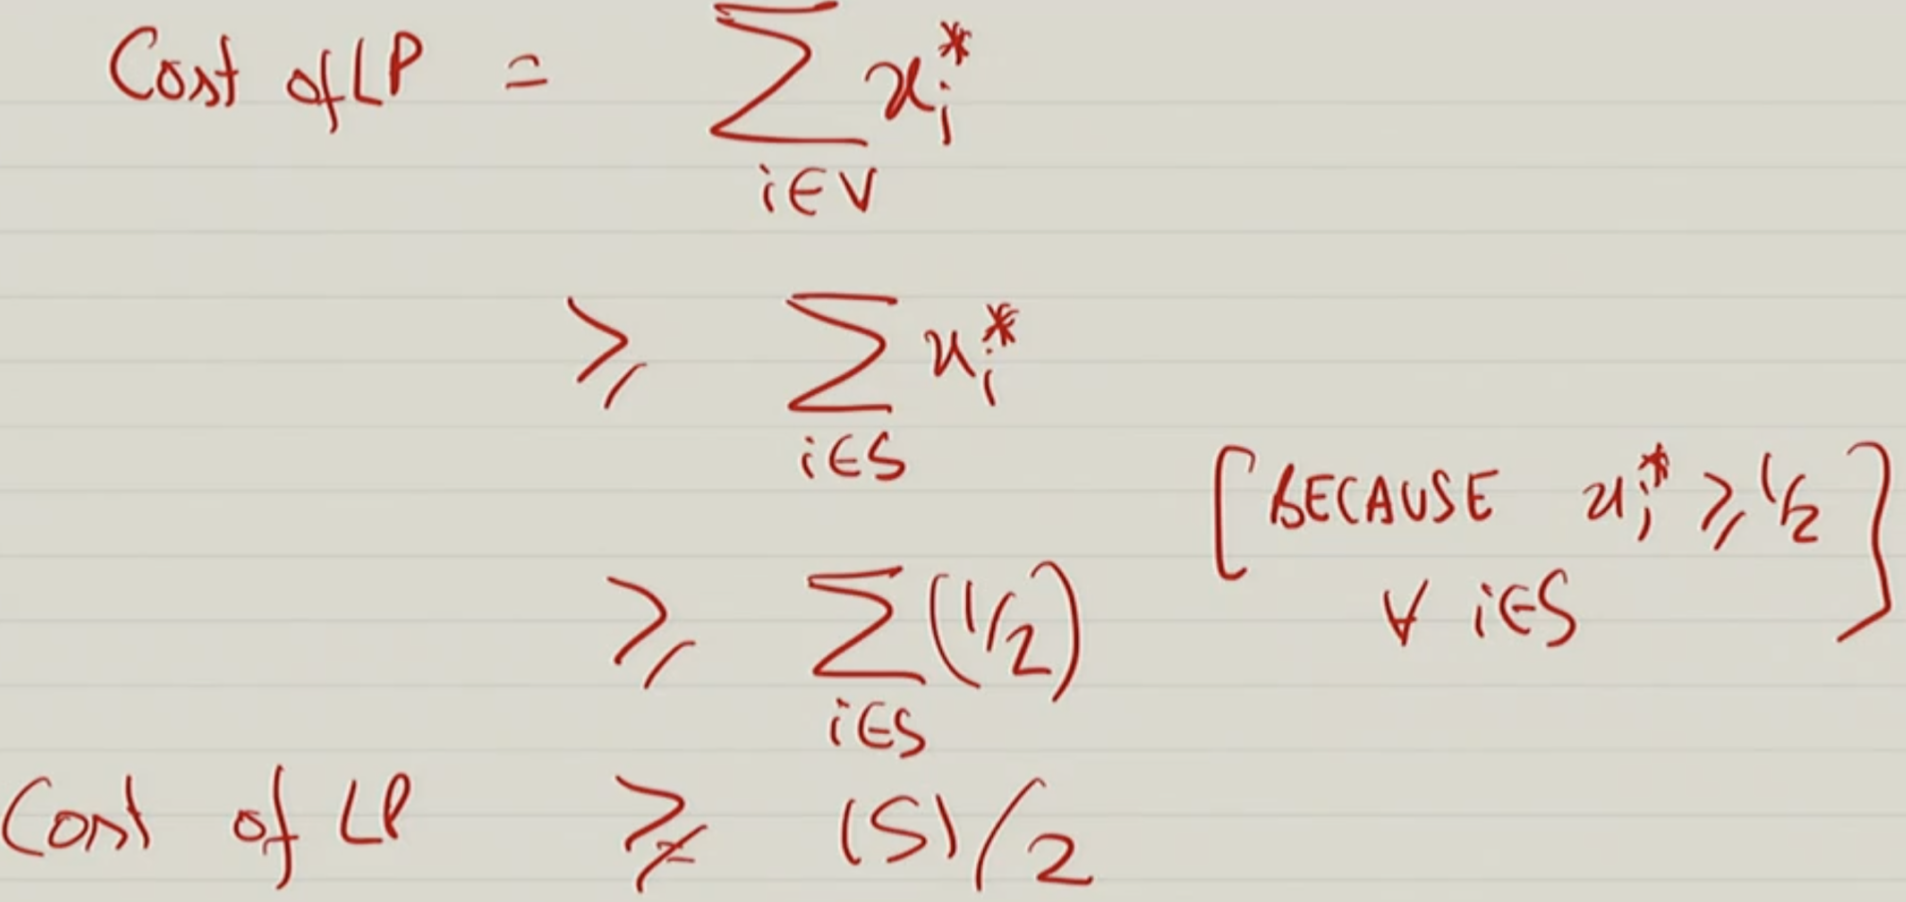 Cost of LP = ∑_{i∈V} x_i^*
⩾ ∑_{i∈S} x_i^*
⩾ ∑_{i∈S} (1/2) [BECAUSE x_i^* ⩾ 1/2 ∀ i∈S]
Cost of LP ⩾ |S|/2